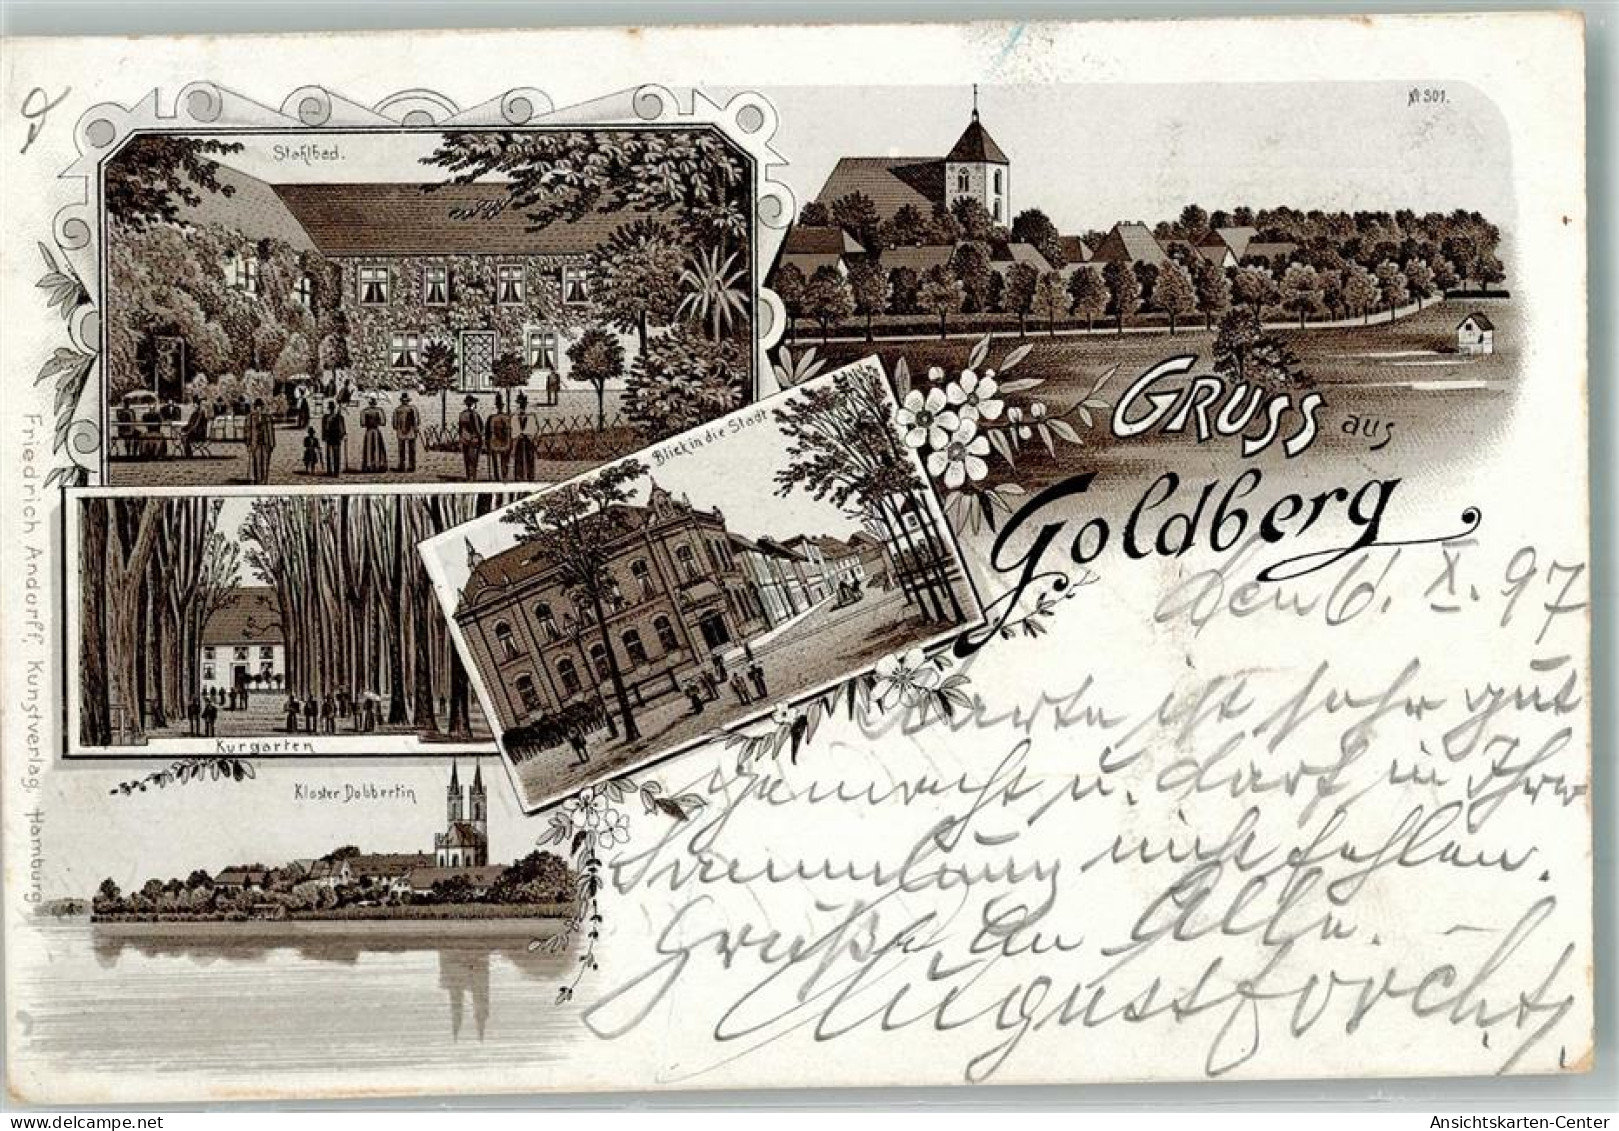 Stahlbad.
№ 301.
Blick in die Stadt
GRUSS aus
Goldberg
Kurgarten
Kloster Dobbertin
Friedrich Andorff, Kunstverlag, Hamburg
den 6. X. 97
Karte ist sehr gut
gemacht u. darf in Ihrer
Sammlung nicht fehlen.
Grüße an Alle.
August
Ansichtskarten-Center